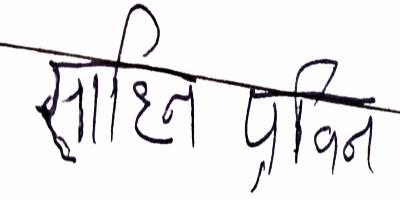 साहिन प्रविन